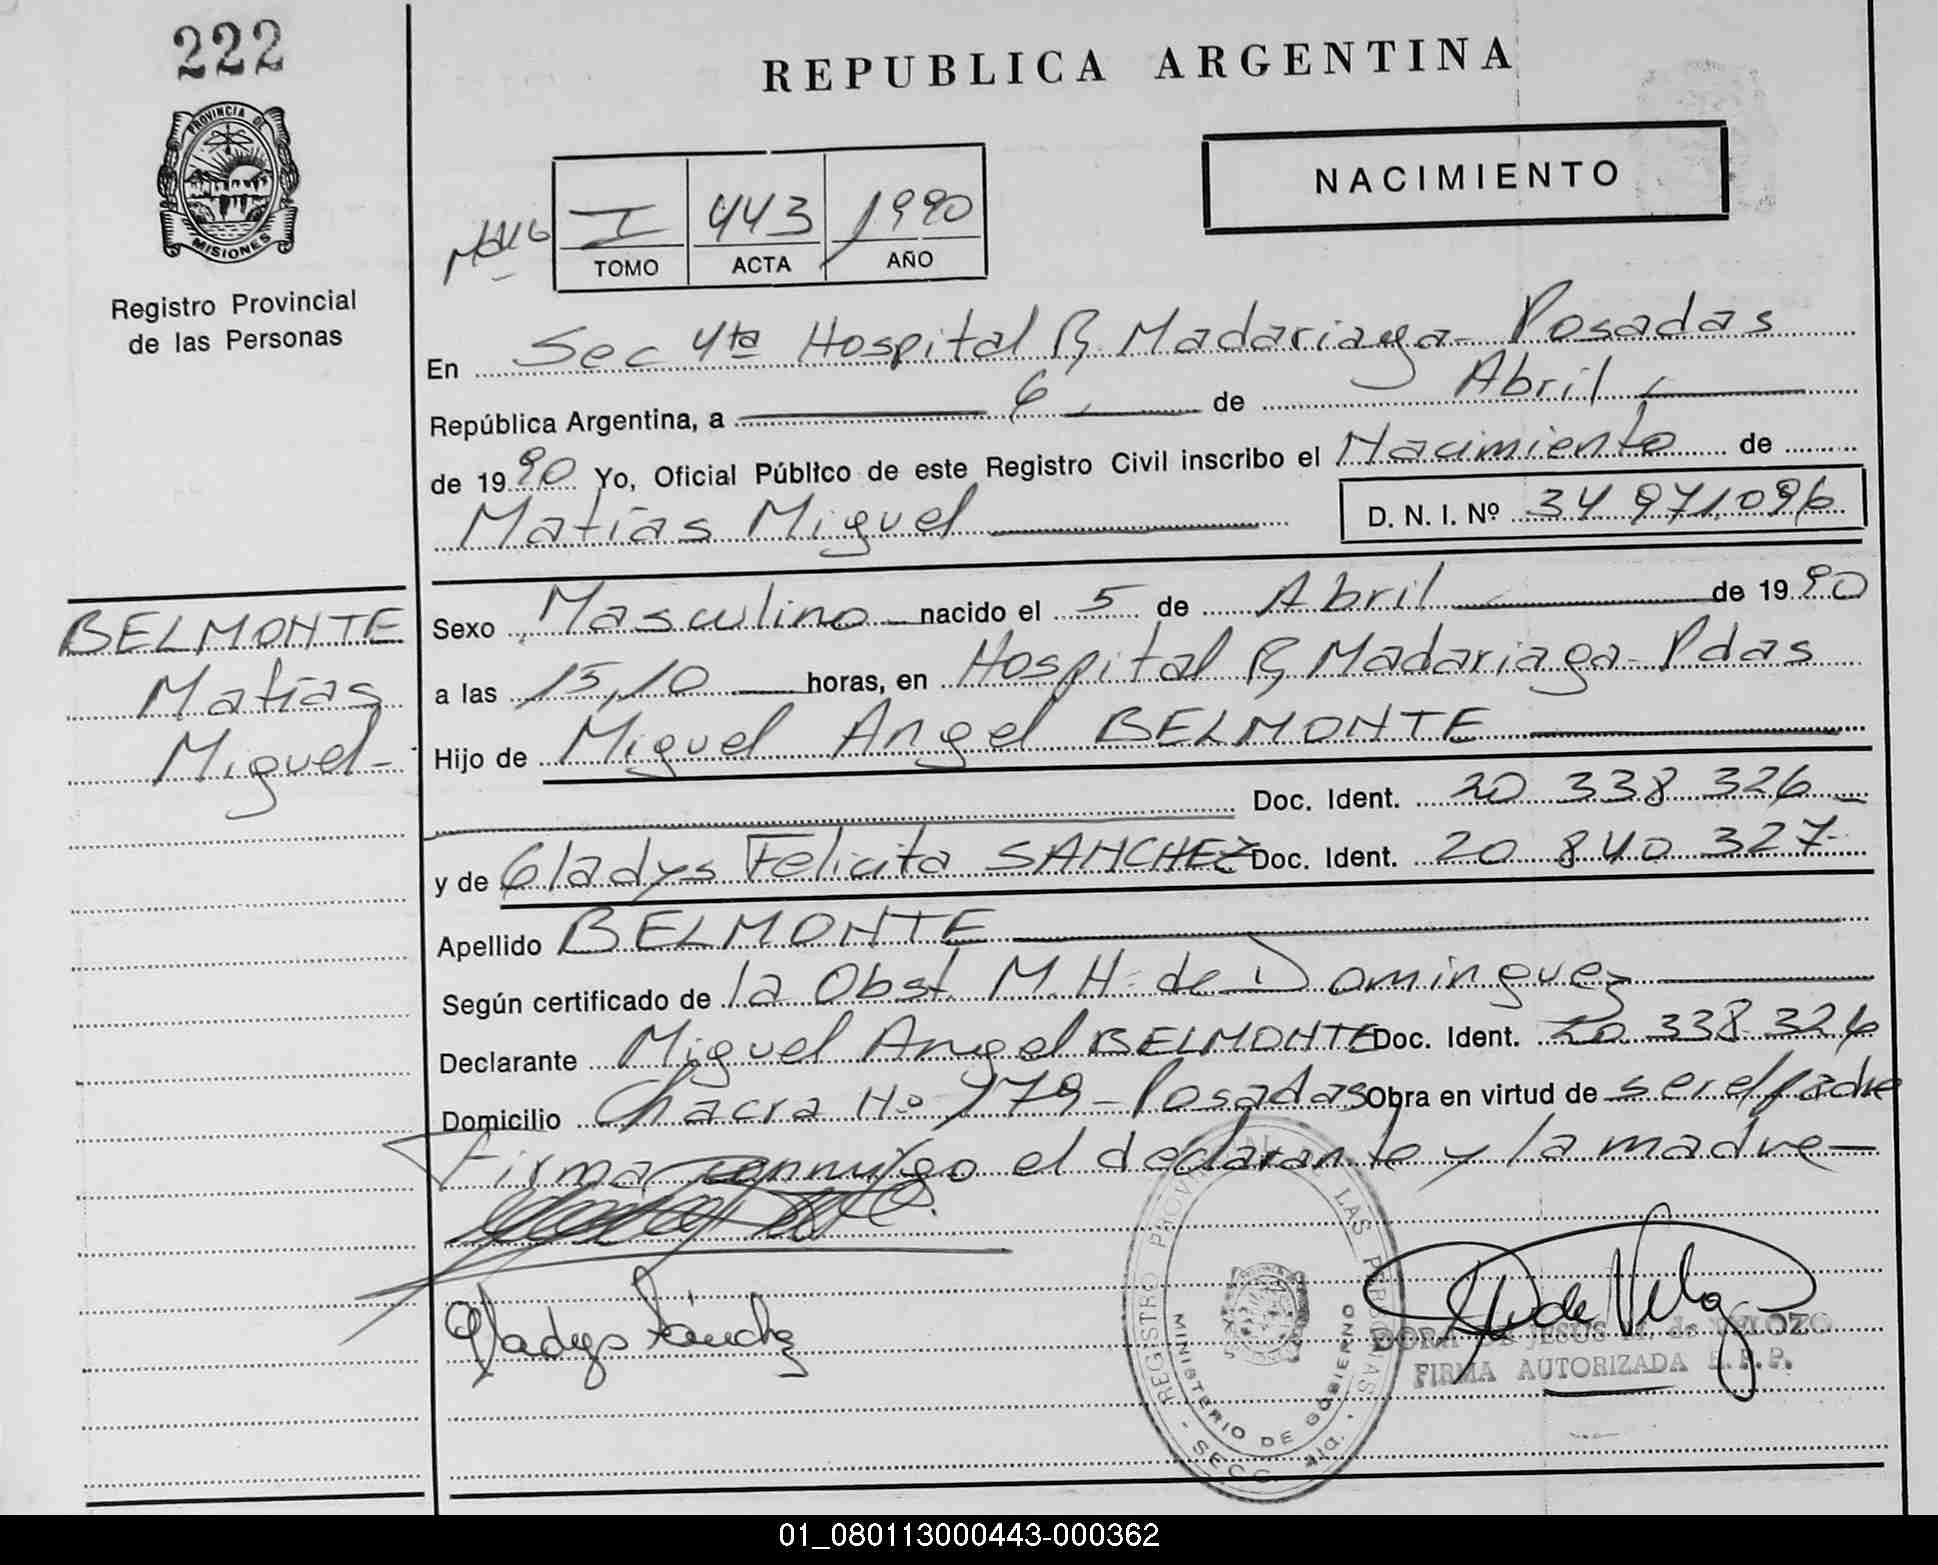 222
PROVINCIA DE
MISIONES
Registro Provincial
de las Personas
REPUBLICA ARGENTINA
NACIMIENTO
I 443 1990
TOMO ACTA AÑO
En Sec 4ta Hospital R, Madariaga - Posadas
República Argentina, a 6 de Abril
de 1990 Yo, Oficial Público de este Registro Civil inscribo el Nacimiento de
Matías Miguel
D. N. I. Nº 34 971.096
Sexo Masculino nacido el 5 de Abril de 1990
a las 15,10 horas, en Hospital R, Madariaga - Pdas
Hijo de Miguel Angel BELMONTE
Doc. Ident. 20 338 326
y de Gladys Felicita SANCHEZ Doc. Ident. 20 840 327-
Apellido BELMONTE
Según certificado de la Obst. M. H. de Dominguez
Declarante Miguel Angel BELMONTE Doc. Ident. 20 338 326
Domicilio Chacra Nº 179 - Posadas Obra en virtud de ser el padre
Firma conmigo el declarante y la madre
BELMONTE
Matías
Miguel -
Gladys Sánchez
REGISTRO PROVINCIAL DE LAS PERSONAS
MINISTERIO DE GOBIERNO
- SECC. 4ta. -
DORA DE JESUS M. de VELOZO
FIRMA AUTORIZADA R. P. P.
01_080113000443-000362